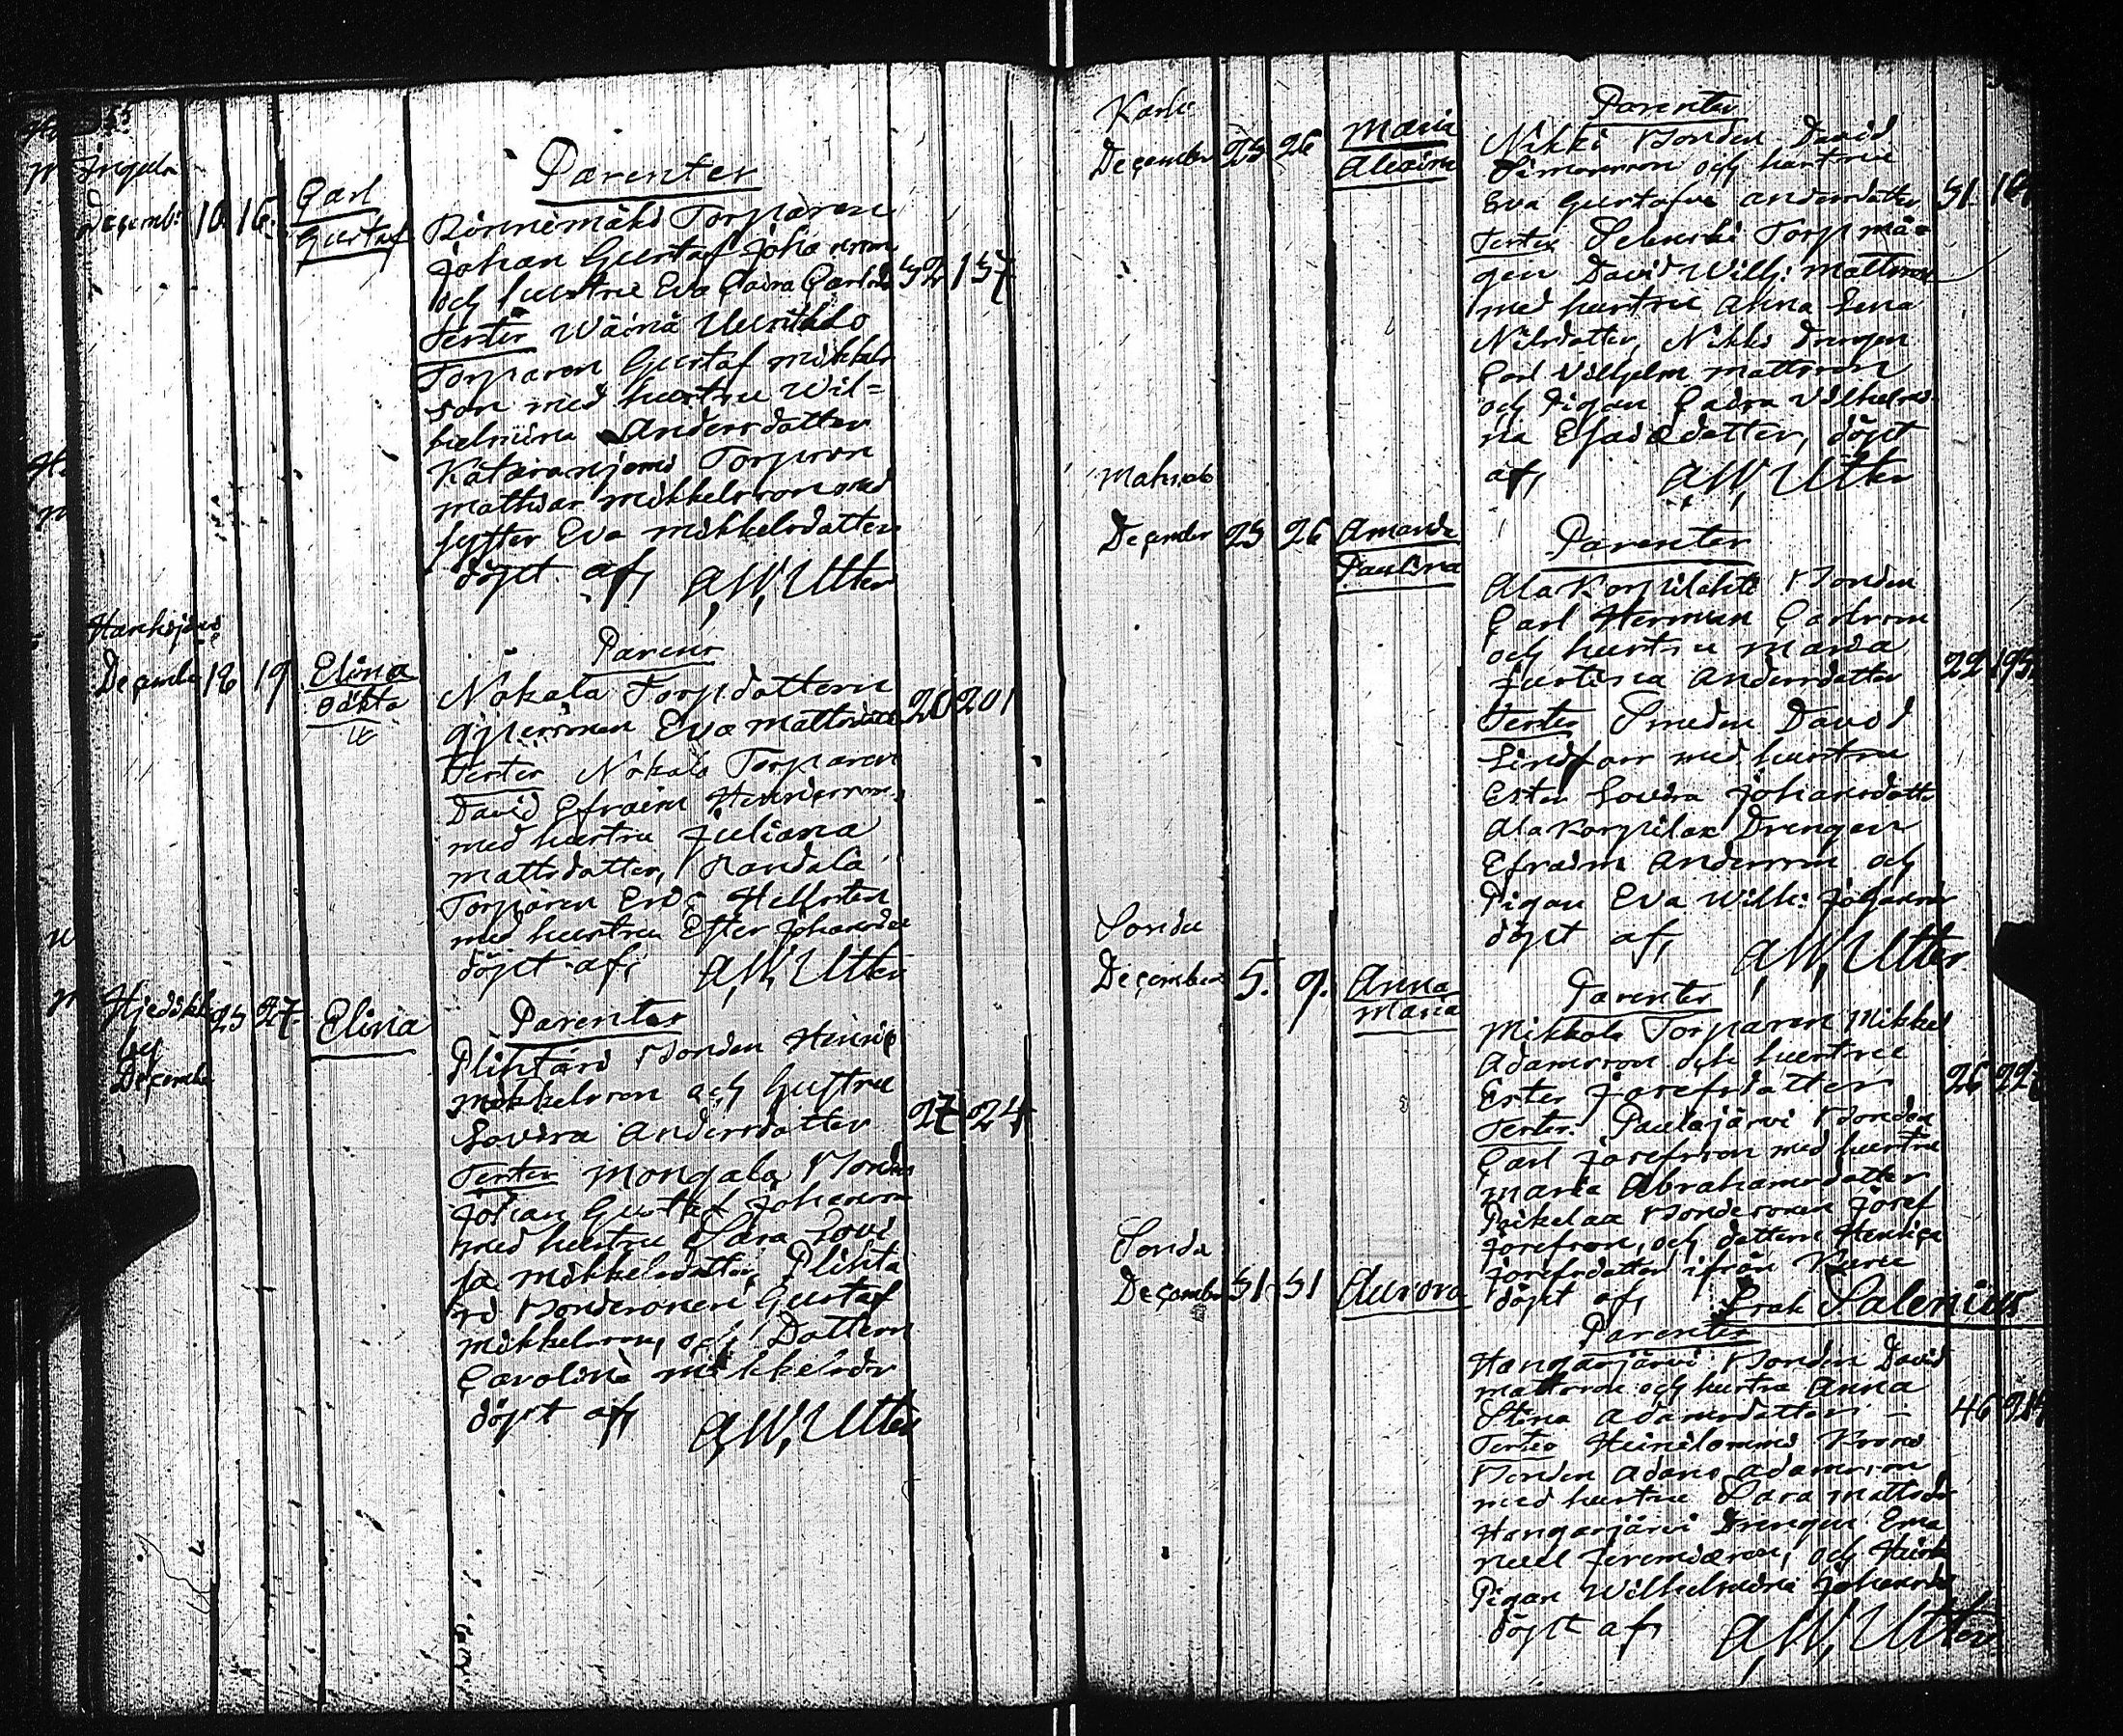 Ingela
Decemb: 16 16. Carl
Gustaf
Parenter
Rinnimäki Torparen
Johan Gustaf Johansson
och hustru Eva Caisa Carlsd
32 137
Tester Wäinä Uusitalo
Torparen Gustaf Mikkels
son med hustru Wil=
helmina Andersdotter
Torparen
Mathias Mikkelsson med
syster Eva Mikkelsdotter
döpt af, A, W, Utter
Hankijoki
December 18 19 Elina
oäkta
Parens
Nokala Torpdottern
qvinnan Eva Mattsdotter
20 201
Tester Nokala Torparen
David Efraim Henricsson
med hustru Juliana
Mattsdotter, Randala
Torparen Eric Hellsten
med hustru Ester Johansdot
döpt af, A, W, Utter
by
December
25 27. Elina
Parenter
Plihtari Bonden Henric
Mikkelsson och hustru
Lovisa Andersdotter
27 24
Tester Mongala Bonden
Johan Gustaf Johansson
med hustru Sara Lovi
sa Mikkelsdotter, Plihta
ri Bondesonen Gustaf
Mikkelsson, och Dottern
Carolina Mikkelsdr
döpt af, A, W, Utter
Karhi
December 25 26 Maria
Alexina
Parenter
Nikki Bonden David
Simonsson och hustru
Eva Gustafva Andersdotter
31
Tester Torpmå=
gen David Wilh: Mattsson
med hustru Anna Lena
Nilsdotter, Nikki Drengen
Carl Vilhelm Mattsson
och Pigan Caisa Vilhelmi
na Esaiædotter, döpt
af, A, W, Utter
December 25 26 Amanda
Paulina
Parenter
Ala Korpilahti Bonden
Carl Herman Carlsson
och hustru Maria
Justina Andersdotter
22 195
Tester Smeden David
Lindfors med hustru
Ester Lovisa Johansdott
Ala Korpilax Drengen
Efraim Andersson och
Pigan Eva Wilh: Johansdr
döpt af, A, W, Utter
Sondu
December 5. 9. Anna
Maria
Parenter
Mikkola Torparen Mikkel
Adamsson och hustru
Ester Josefsdotter
26 22
Tester Paulajärvi Bonden
Carl Josefsson med hustru
Maria Abrahamsdotter
Bondesonen Josef
Josefsson, och dottern Henrica
Josefsdotter ifrån Kuru
döpt af, Salenius
Sondu
December 31 31 Aurora
Parenter
Hangasjärvi Bonden David
Mattsson och hustru Anna
Stina Adamsdotter
46 214
Tester
Bonden Adam Adamsson
med hustru Sara Mattsdr
Hangasjärvi Drengen Ema
nuel Jeremiæson, och
Pigan Wilhelmina Johansdr
döpt af, A, W, Utter